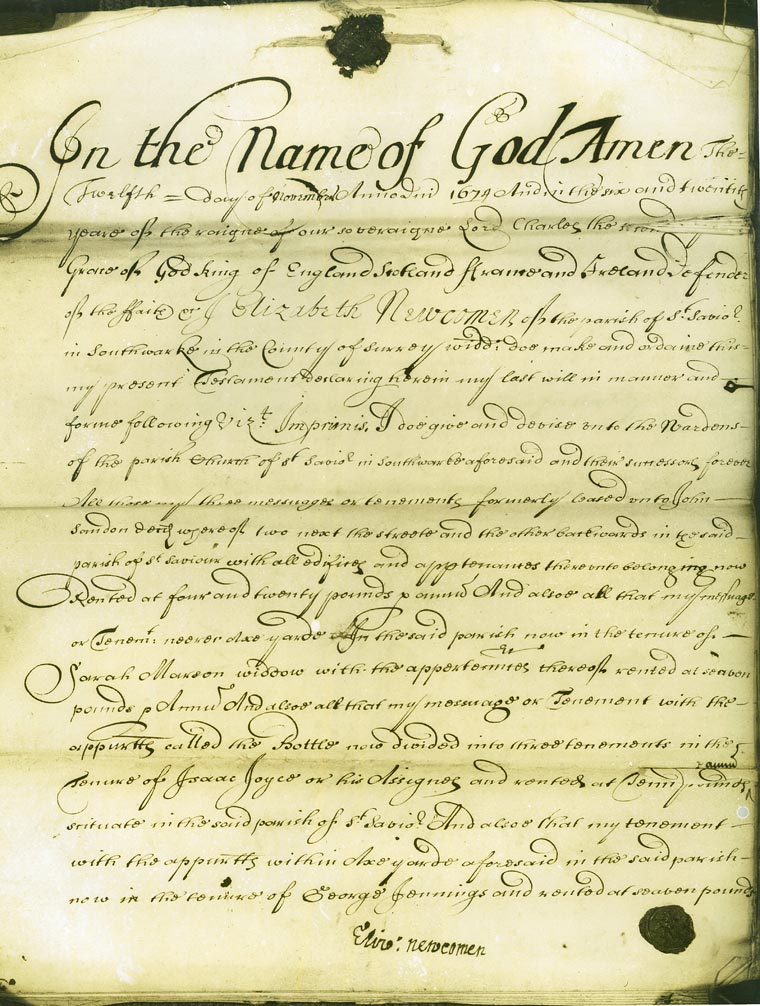 In the Name of God Amen The
Twelfth = day of November Anno Dni 1674 And in the six and twentith
yeare of the raigne of our soveraigne Lord Charles the second
Grace of God King of England Scotland ffrance and Ireland Defender
of the ffaith &c I Elizabeth Newcomen of the parish of St Savior
in Southwarke in the County of Surrey widd: doe make and ordaine this
my present Testament declaring herein my last will in manner and
forme following Vizt. Imprimis. I doe give and devise unto the Wardens
of the parish Church of St Savior in Southwarke aforesaid and their successors forever
All those my three messuages or tenements formerly leased unto John
Sandon decd whereof two next the streete and the other backwards in the said
parish of St Saviour with all edifices and apptenances thereunto belonging now
Rented at four and twenty pounds p annu And alsoe all that my messuage
or Tenemt. neere Axe yarde In the said parish now in the tenure of
Sarah Marson widdow with the appertennces thereof rented at seaven
pounds p Annu And alsoe all that my messuage or Tenement with the
appurtts called the Bottle now divided into three tenements in the
Tenure of Isaac Joyce or his Assignes and rented at Tenn pounds p annu
scituate in the said parish of St Savior And alsoe that my tenement
with the appurtts within Axe yarde aforesaid in the said parish
now in the tenure of George Jennings and rented at seaven pounds
Eliz: newcomen